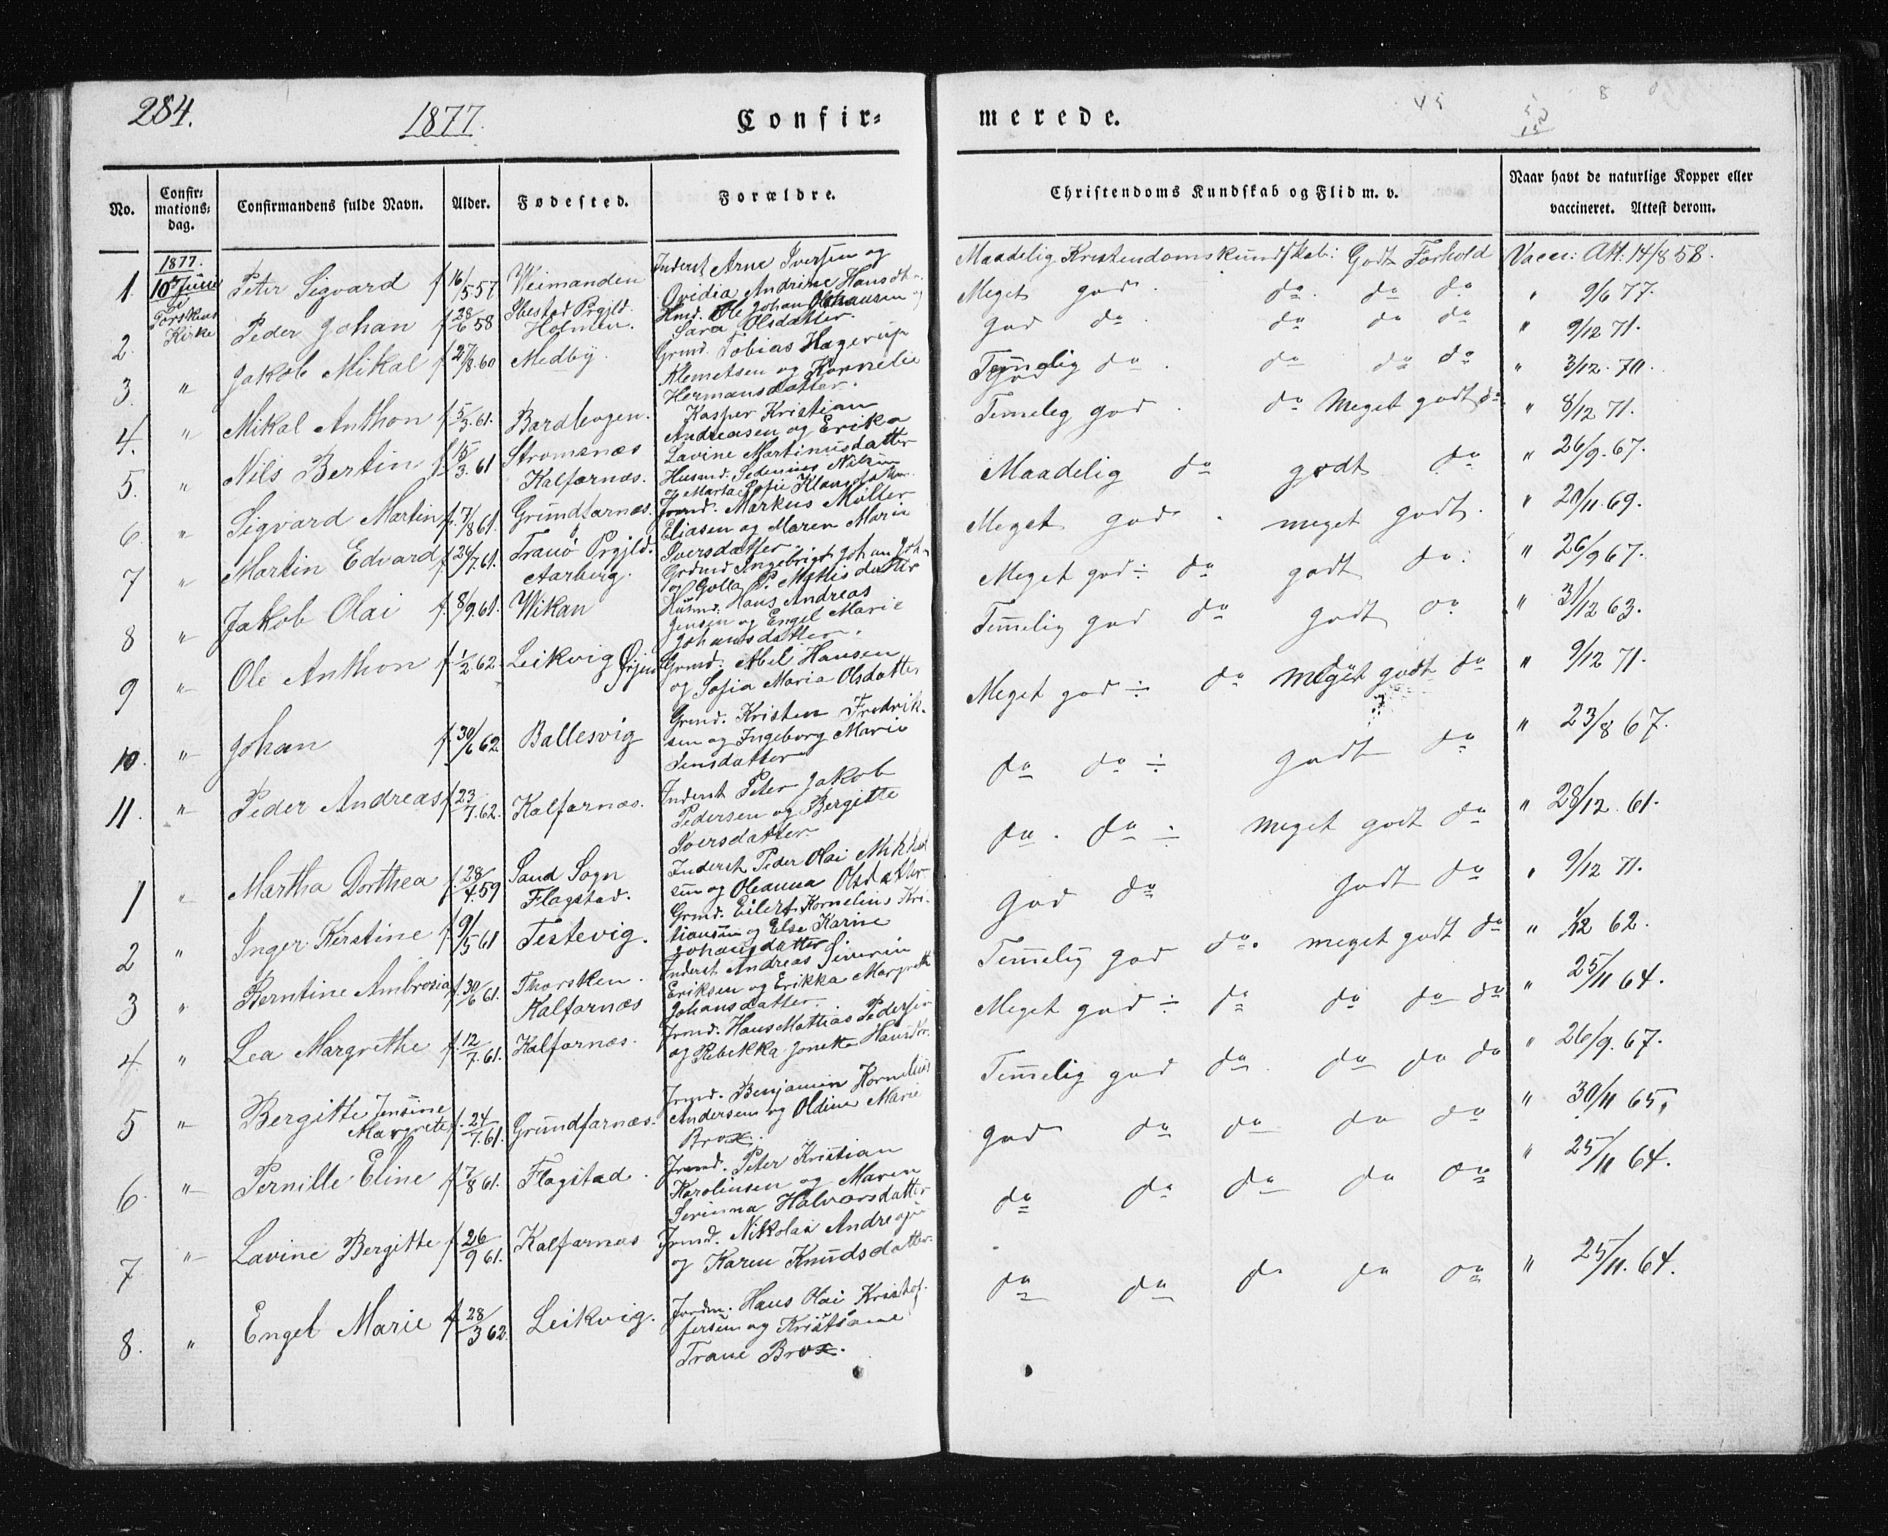 284.
1877.
Confir=
merede.
No.
Confir=
mations=
dag.
Confirmandens fulde Navn.
Alder.
Fødested.
Forældre.
Christendoms Kundskab og Flid m. v.
Naar havt de naturlige Kopper eller
vaccineret. Attest derom.
1877.
1. 10de Juni Peter Sigvard f 16/5 57 Weimanden Inderst Arne Iversen og
Ovidia Andrine Hansdt.
Maadelig Kristendomskundskab: Godt Forhold Vacc: Att. 14/8 58.
Torsken
Kirke
2. Peder Johan f 28/6 58 Ibestad Prgjld. Holmen. Hmd. Ole Johan Olshausen og
Sara Olsdatter.
Meget god. do. do do " 9/6 77.
3. " Jakob Mikal f 27/8. 60 Medby. Grmd. Tobias Hagerup
Klemetsen og Kornelie
Hermansdatter.
God do. do do do " 9/12 71.
4. " Mikal Anthon f 5/3. 61. Bardbogen. Kasper Kristian
Andreasen og Erika
Lavine Martinusdatter
Temelig do. do do do " 3/12. 70.
5. " Nils Bertin f 15/3. 61 Stromsnæs
Kalfarnæs. Husmd.
Temelig god. do Meget godt do " 8/12 71.
6. " Sigvard Martin f. 7/8 61. Grundfarnæs. Jrmd. Markus Möller
Eliasen og Maren Marie
Iversdatter.
Maadelig do godt do " 26/9. 67.
7 " Martin Edvard f 24/7. 61. Tranø Prgjld.
Aarberg. Grdmd Ingebrigt Johan Joh-
og Golla P. Mathisdatter
Meget god. meget godt. " 20/11 69.
8 " Jakob Olai f. 8/9. 61. Wikan Husmd. Hans Andreas
Jensen og Engel Marie
Johansdatter.
Meget god ÷ do godt do. " 26/9 67.
9 " Ole Anthon f 1/2 62. Leikvig Grmd. Abel Hansen
og Sofia Maria Olsdatter
Temelig god do godt do " 31/12 63.
10. " Johan f. 30/6 62 Ballesvig Grmd. Kristen Fredrik-
sen og Ingeborg Marie
Jensdatter
Meget god ÷ do meget godt do " 9/12 71.
11. " Peder Andreas f 23/7. 62. Kalfarnæs. Inderst Peter Jakob
Pedersen og Bergitte
Iversdatter
do do ÷ godt do " 23/8 67.
1 " Martha Dorthea f. 28/4. 59 Sand Sogn
Flagstad. Inderst Peder Olai Mikkel
sen og Oleanna Olsdatter
do. do ÷ meget godt do " 28/12. 61.
2 " Inger Kerstine f. 9/5 61 Testevig. Grmd. Eilert Kornelius Kri-
tiansen og Else Karine
Johansdatter
God do godt do " 9/12 71.
3 " Berntine Ambrosia f. 30/6 61. Thorsken.
Kalfarnæs Inderst Andreas Siverin
Eriksen og Erikka Margreth
Johansdatter.
Temelig god do. meget godt do " 1/2 62.
4 " Lea Margrethe f. 12/7. 61. Kalfarnæs. Jrmd. Hans Mathias Pedersen
og Rebekka Jonetta Hansdtr.
Meget god ÷ do do do do " 25/11 64.
5 " Bergitte Jensine
Margrete f. 24/7. 61. Grundfarnæs. Jrmd. Benjamin Kornelius
Andersen og Oldine Marie
Brox.
Temelig god do. do do do " 26/9. 67.
6 " Pernille Eline f. 7/8 61. Flagstad. Jrmd. Peter Kristian
Karolinsen og Maren
Serinna Halvorsdatter
god do do do do " 30/11 65.
7 " Lavine Bergitte f. 26/9 61. Kalfarnæs Jrmd. Nikolai Andreas
og Karen Knudsdatter.
do do do do do " 25/11 64.
8. " Engel Marie f. 28/3 62. Leikvig. Jordm. Hans Olai Kristof-
fersen og Kristiane
Trane Brox.
do do do do do " 25/11. 64.